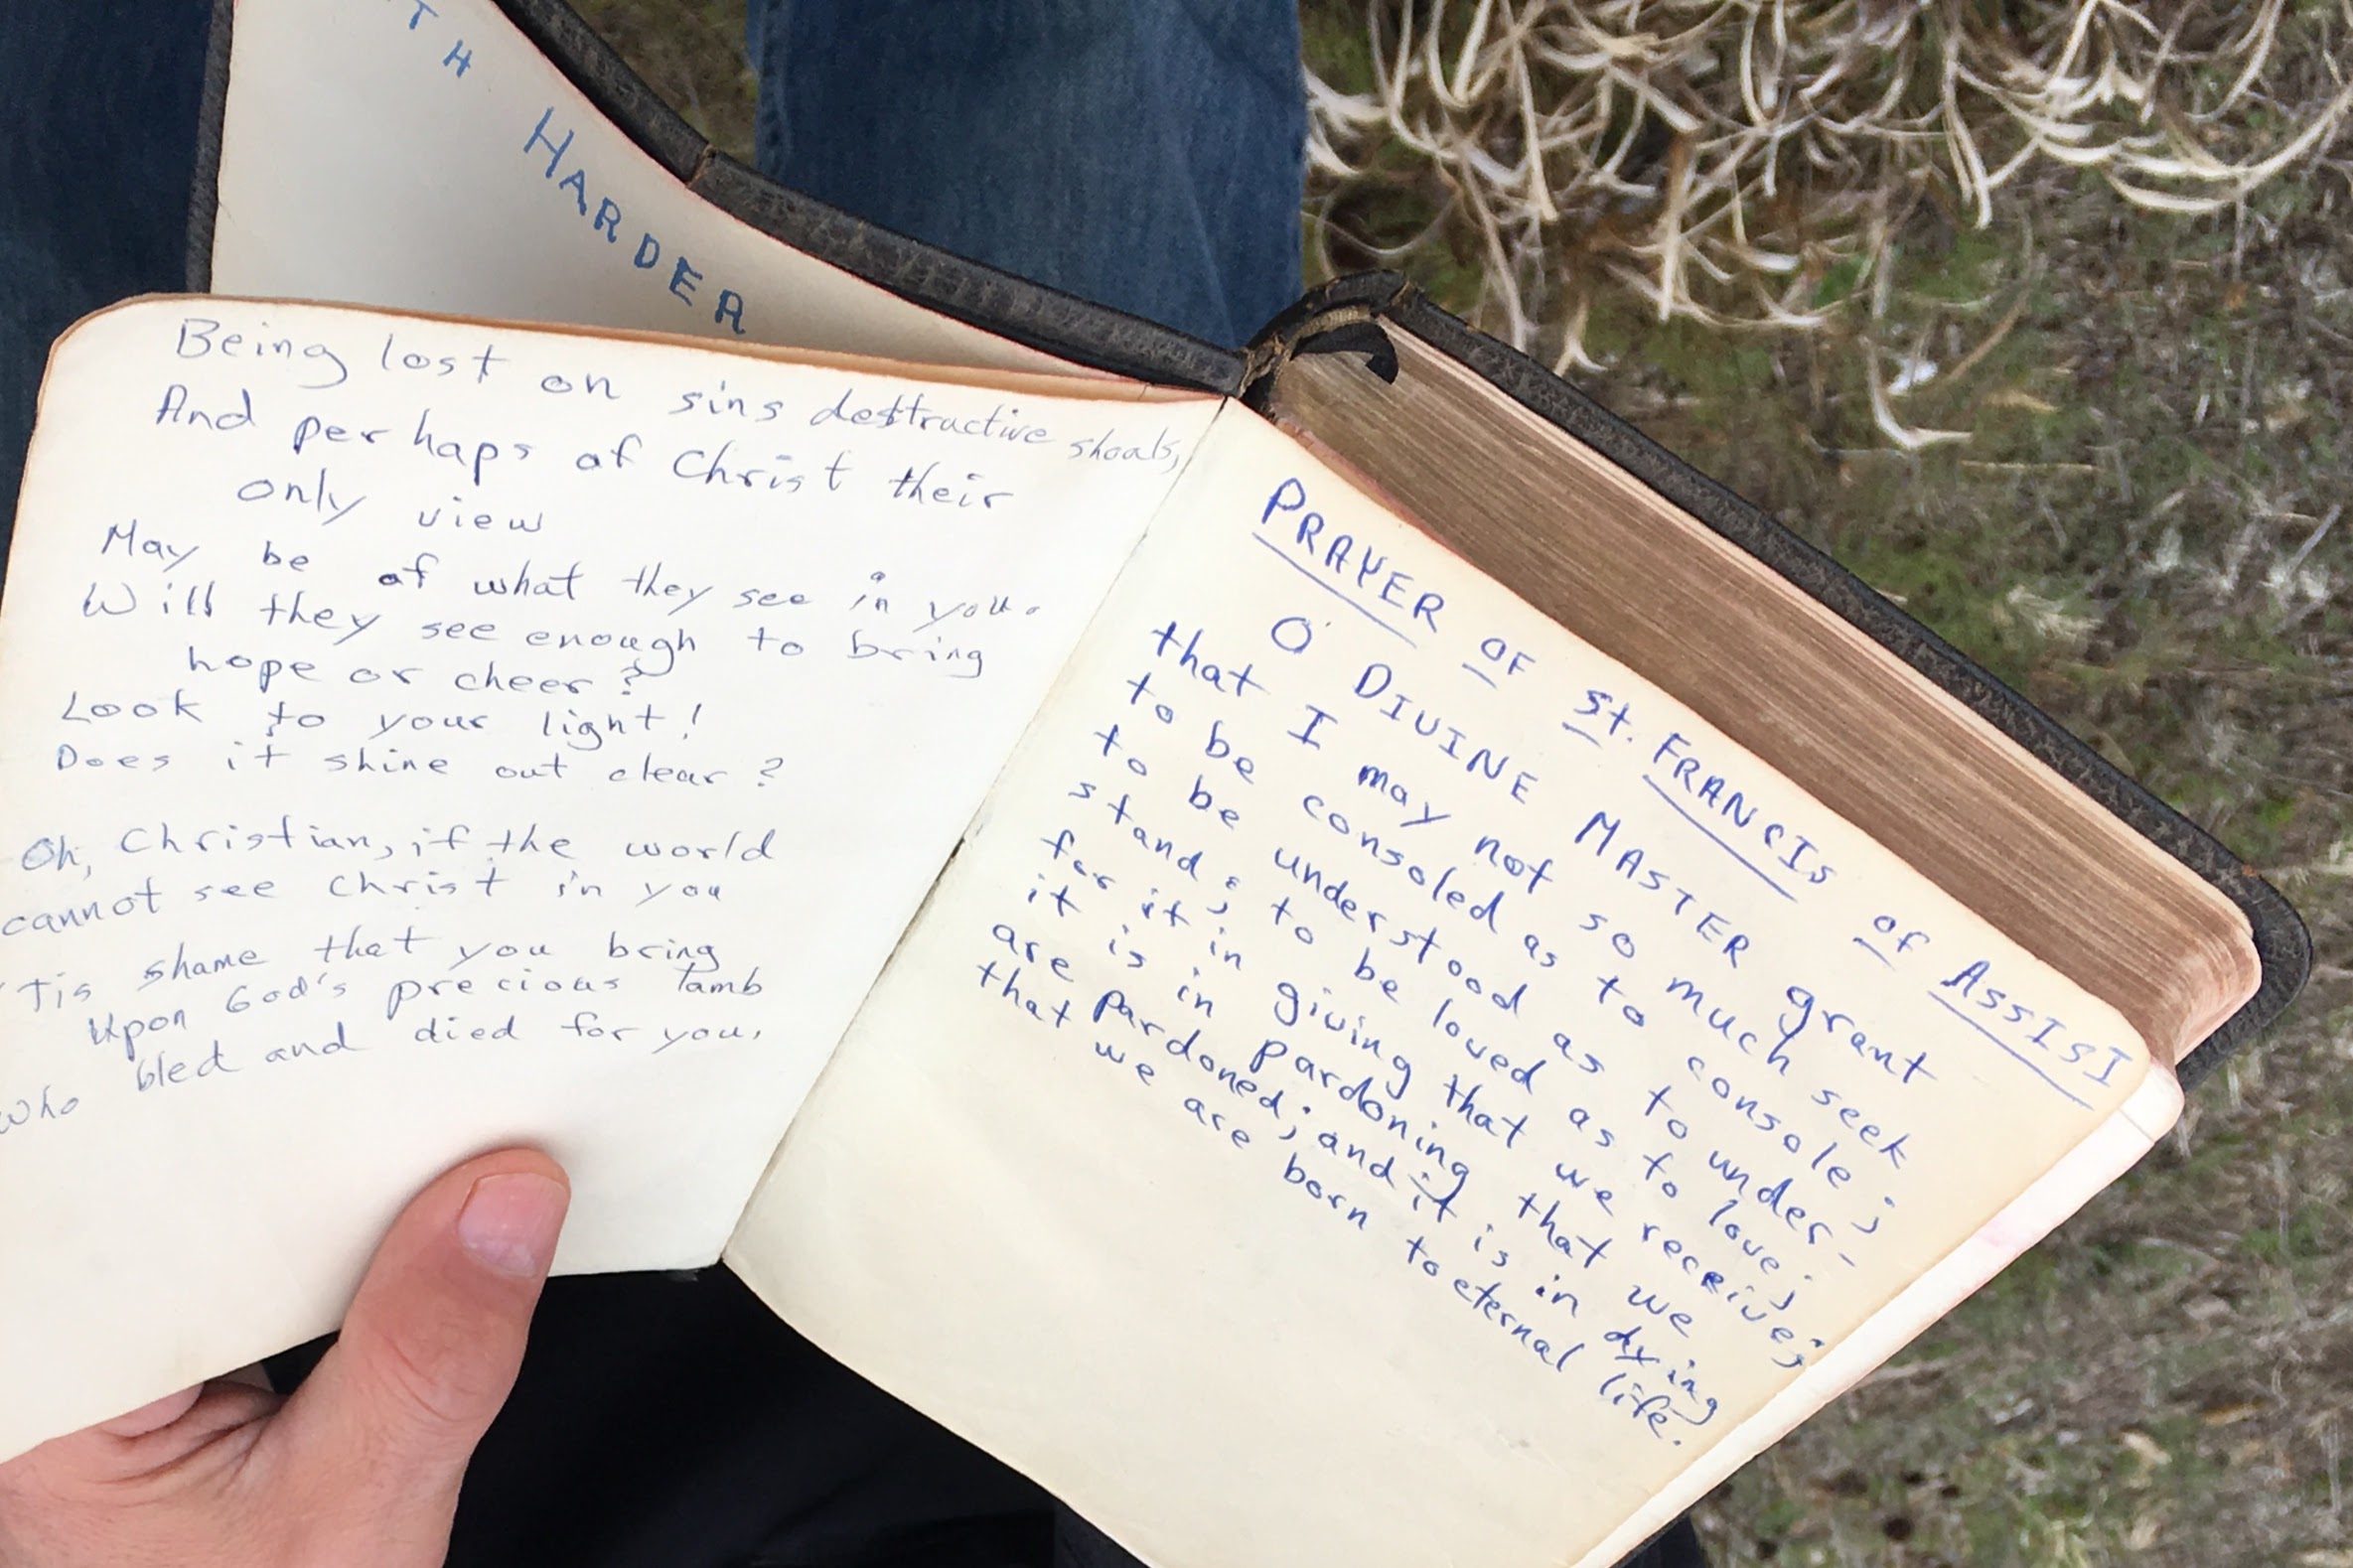 TH HARDER
Being lost on sins destructive shoals,
And perhaps of Christ their
only view
May be of what they see in you.
Will they see enough to bring
hope or cheer?
Look to your light!
Does it shine out clear?
Oh, Christian, if the world
cannot see Christ in you
'Tis shame that you bring
Upon God's precious lamb
who bled and died for you,
PRAYER OF St. FRANCIS of ASSISI
O DIVINE MASTER grant
that I may not so much seek
to be consoled as to console;
to be understood as to under-
stand; to be loved as to love;
for it in giving that we receive;
it is in pardoning that we
are pardoned; and it is in dying
that we are born to eternal life.